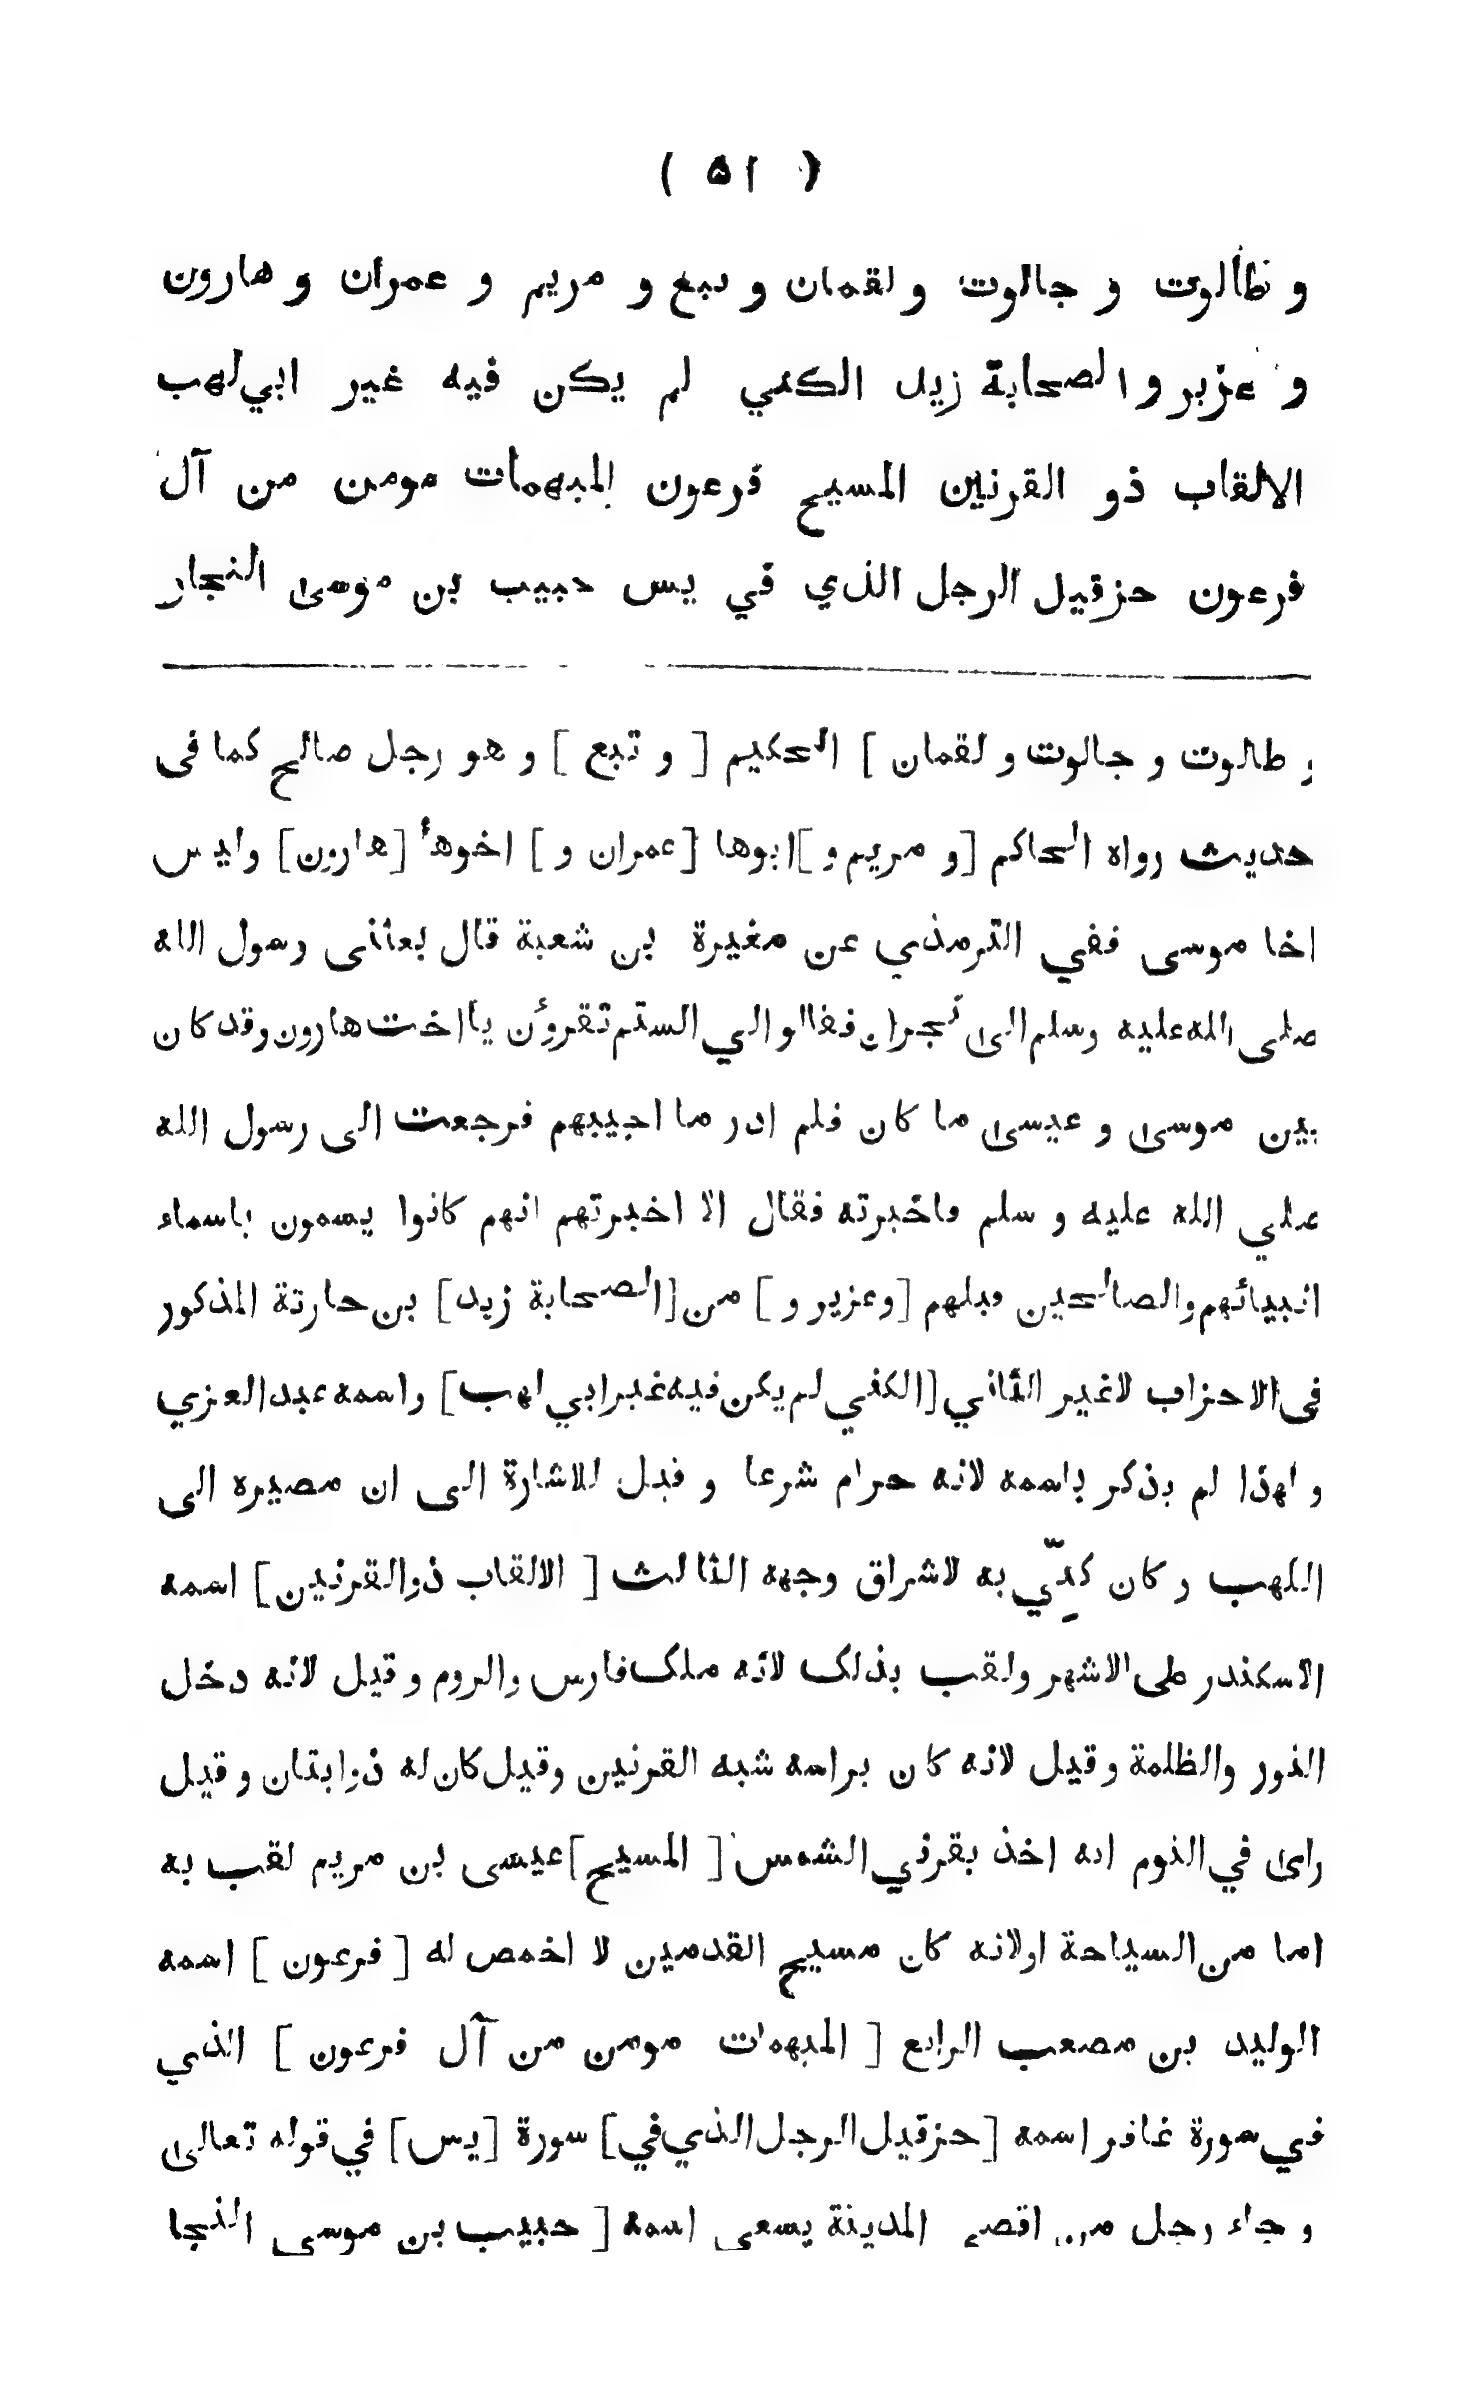 ( ٥١ )
و طالوت و جالوت و لقمان و تبع و مريم و عمران و هارون
و عزير و الصحابة زيد الكني لم يكن فيه غير ابي لهب
الالقاب ذو القرنين المسيح فرعون المبهمات مومن من آل
فرعون حزقيل الرجل الذي في يس حبيب بن موسى النجار
و طالوت و جالوت و لقمان ] الحكيم [ و تبع ] و هو رجل صالح كما فى
حديث رواه الحاكم [و مريم و ]ابوها [عمران و ] اخوها [هارون] وليس
اخا موسى ففي الترمذي عن مغيرة بن شعبة قال بعثنى رسول الله
صلى الله عليه وسلم الى نجران فقالوا لي الستم تقرؤن يا اخت هارون وقد كان
بين موسى و عيسى ما كان فلم ادر ما اجيبهم فرجعت الى رسول الله
صلي الله عليه و سلم فاخبرته فقال الا اخبرتهم انهم كانوا يسمون باسماء
انبيائهم والصالحين قبلهم [وعزير و ] من [الصحابة زيد] بن حارثة المذكور
فى الاحزاب لا غير الثاني [الكني لم يكن فيه غير ابي لهب] واسمه عبد العزي
و لهذا لم يذكر باسمه لانه حرام شرعا و قيل للاشارة الى ان مصيره الى
اللهب و كان كنّي به لاشراق وجهه الثالث [ الالقاب ذوالقرنين] اسمه
الاسكندر على الاشهر ولقب بذلك لانه ملك فارس والروم و قيل لانه دخل
النور والظلمة و قيل لانه كان براسه شبه القرنين وقيل كان له ذوابتان و قيل
راى في النوم انه اخذ بقرني الشمس [ المسيح ] عيسى بن مريم لقب به
اما من السياحة اولانه كان مسيح القدمين لا اخمص له [ فرعون ] اسمه
الوليد بن مصعب الرابع [ المبهمات مومن من آل فرعون ] الذي
في سورة غافر اسمه [حزقيل الرجل الذي في] سورة [يس] في قوله تعالى
و جاء رجل من اقصى المدينة يسعى اسمه [ حبيب بن موسى النجا